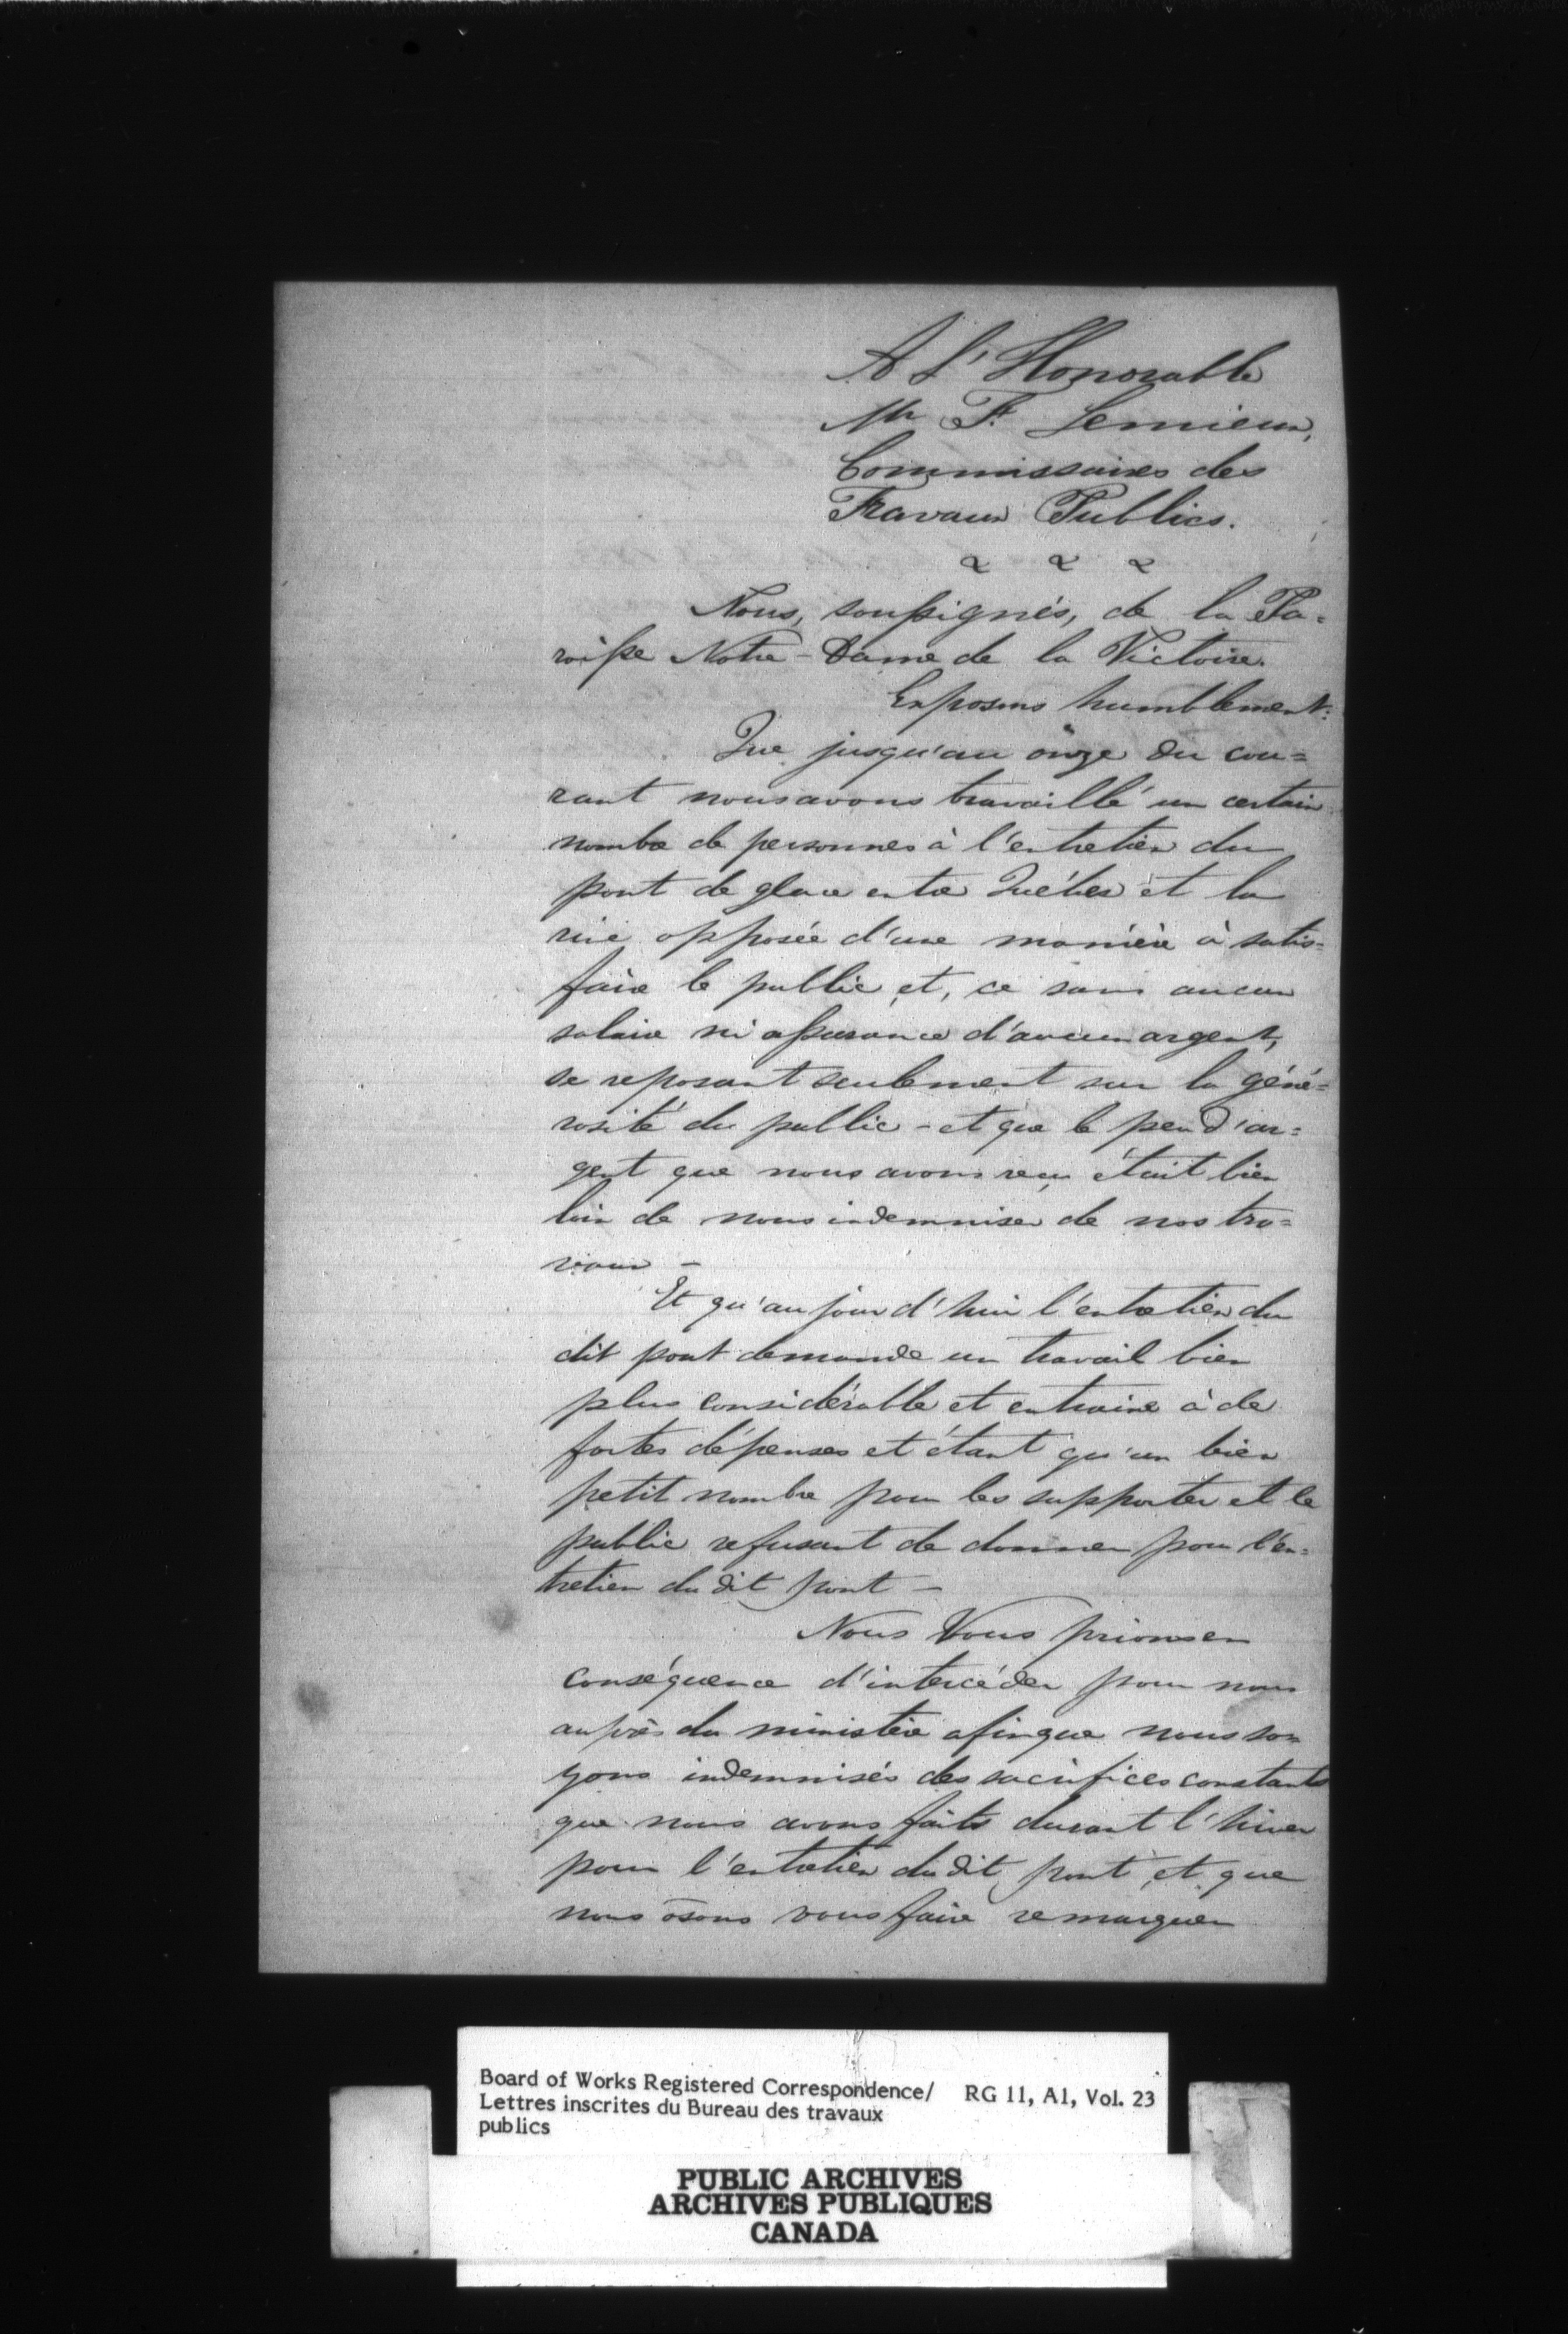 A L'Honorable
Mr F. Lemieux,
Commissaires des
Travaux Publics.
Nous, soussignés, de la Pa=
roisse Notre-Dame de la Victoire.
Exposons humblement:
Que jusqu'au onze du cou=
rant nous avons travaillé un certain
nombre de personnes à l'entretien du
pont de glace entre Québec et la
rive opposée d'une manière à satis=
faire le public et, ce sans aucun
salaire ni assurance d'aucun argent,
se reposant seulement sur la géné=
rosité du public - et que le peu d'ar=
gent que nous avons reçu était bien
loin de nous indemniser de nos tra=
vaux -
Et qu'aujourd'hui l'entretien du
dit pont demande un travail bien
plus considérable et entraine à de
fortes dépenses et étant qu'un bien
petit nombre pour les supporter et le
public refusant de donner pour l'en=
tretien du dit pont -
Nous Vous prions en
conséquence d'intercéder pour nous
auprès du ministère afin que nous so=
yons indemnisés des sacrifices constants
que nous avons faits durant l'hiver
pour l'entretien du dit pont, et que
nous osons vous faire remarquer
Board of Works Registered Correspondence/ RG 11, A1, Vol. 23
Lettres inscrites du Bureau des travaux
publics
PUBLIC ARCHIVES
ARCHIVES PUBLIQUES
CANADA